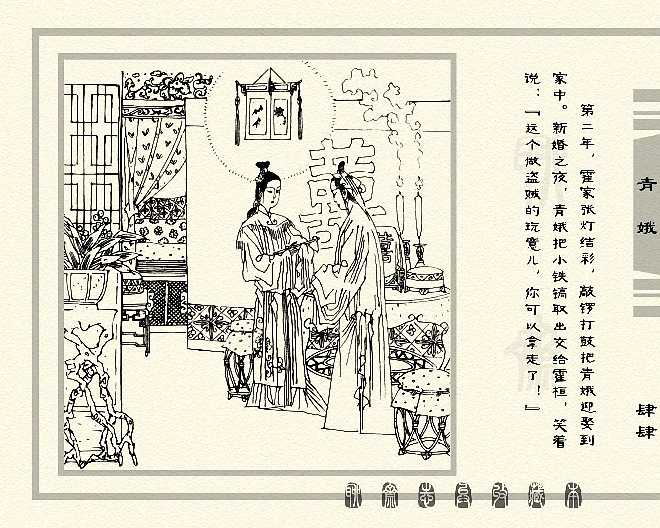 第二年，霍家张灯结彩，敲锣打鼓把青娥迎娶到
家中。新婚之夜，青娥把小铁镐取出交给霍桓，笑着
说：「这个做盗贼的玩意儿，你可以拿走了！」
青娥
肆肆
囍
聊斋志异收藏本